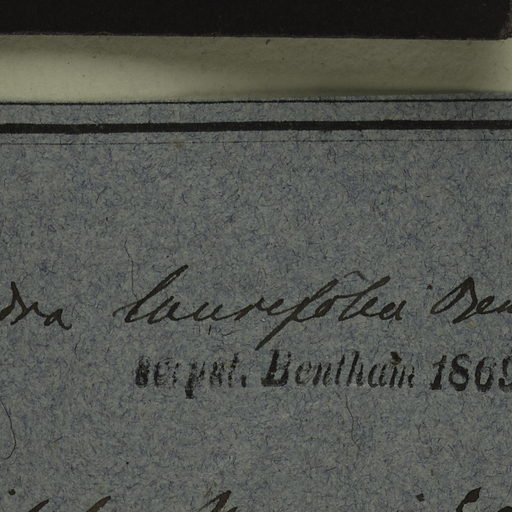 dra laurifolia Ben
scrpst. Bentham 1869